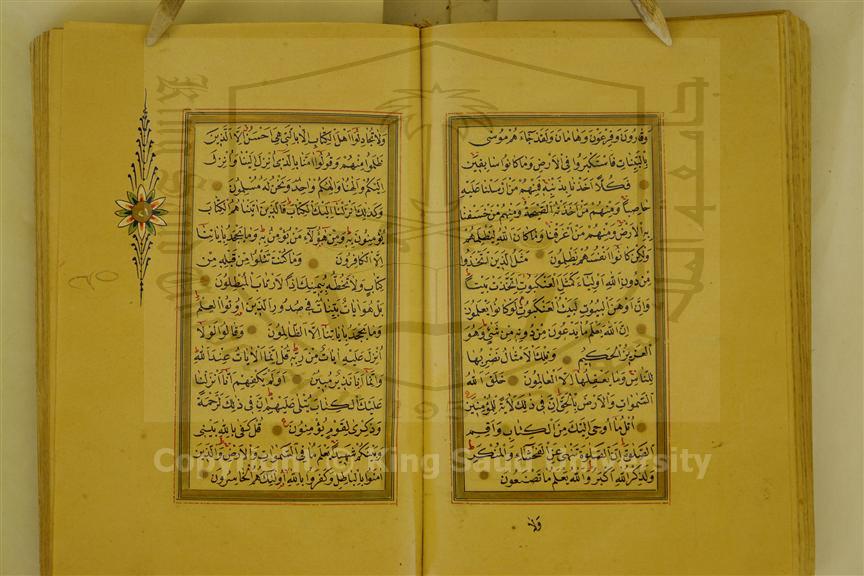 وَقَارُونَ وَفِرْعَوْنَ وَهَامَانَ وَلَقَدْ جَاءَهُمْ مُوسَى
بِالْبَيِّنَاتِ فَاسْتَكْبَرُوا فِي الْأَرْضِ وَمَا كَانُوا سَابِقِينَ
فَكُلًّا أَخَذْنَا بِذَنْبِهِ فَمِنْهُمْ مَنْ أَرْسَلْنَا عَلَيْهِ
حَاصِبًا وَمِنْهُمْ مَنْ أَخَذَتْهُ الصَّيْحَةُ وَمِنْهُمْ مَنْ خَسَفْنَا
بِهِ الْأَرْضَ وَمِنْهُمْ مَنْ أَغْرَقْنَا وَمَا كَانَ اللَّهُ لِيَظْلِمَهُمْ
وَلَكِنْ كَانُوا أَنْفُسَهُمْ يَظْلِمُونَ مَثَلُ الَّذِينَ اتَّخَذُوا
مِنْ دُونِ اللَّهِ أَوْلِيَاءَ كَمَثَلِ الْعَنْكَبُوتِ اتَّخَذَتْ بَيْتًا
وَإِنَّ أَوْهَنَ الْبُيُوتِ لَبَيْتُ الْعَنْكَبُوتِ لَوْ كَانُوا يَعْلَمُونَ
إِنَّ اللَّهَ يَعْلَمُ مَا يَدْعُونَ مِنْ دُونِهِ مِنْ شَيْءٍ وَهُوَ
الْعَزِيزُ الْحَكِيمُ وَتِلْكَ الْأَمْثَالُ نَضْرِبُهَا
لِلنَّاسِ وَمَا يَعْقِلُهَا إِلَّا الْعَالِمُونَ خَلَقَ اللَّهُ
السَّمَوَاتِ وَالْأَرْضَ بِالْحَقِّ إِنَّ فِي ذَلِكَ لَآيَةً لِلْمُؤْمِنِينَ
اُتْلُ مَا أُوحِيَ إِلَيْكَ مِنَ الْكِتَابِ وَأَقِمِ
الصَّلَوةَ إِنَّ الصَّلَوةَ تَنْهَى عَنِ الْفَحْشَاءِ وَالْمُنْكَرِ
وَلَذِكْرُ اللَّهِ أَكْبَرُ وَاللَّهُ يَعْلَمُ مَا تَصْنَعُونَ
ولا
وَلَا تُجَادِلُوا أَهْلَ الْكِتَابِ إِلَّا بِالَّتِي هِيَ أَحْسَنُ إِلَّا الَّذِينَ
ظَلَمُوا مِنْهُمْ وَقُولُوا آمَنَّا بِالَّذِي أُنْزِلَ إِلَيْنَا وَأُنْزِلَ
إِلَيْكُمْ وَإِلَهُنَا وَإِلَهُكُمْ وَاحِدٌ وَنَحْنُ لَهُ مُسْلِمُونَ
وَكَذَلِكَ أَنْزَلْنَا إِلَيْكَ الْكِتَابَ فَالَّذِينَ آتَيْنَاهُمُ الْكِتَابَ
يُؤْمِنُونَ بِهِ وَمِنْ هَؤُلَاءِ مَنْ يُؤْمِنُ بِهِ وَمَا يَجْحَدُ بِآيَاتِنَا
إِلَّا الْكَافِرُونَ وَمَا كُنْتَ تَتْلُوا مِنْ قَبْلِهِ مِنْ
كِتَابٍ وَلَا تَخُطُّهُ بِيَمِينِكَ إِذًا لَارْتَابَ الْمُبْطِلُونَ
بَلْ هُوَ آيَاتٌ بَيِّنَاتٌ فِي صُدُورِ الَّذِينَ أُوتُوا الْعِلْمَ
وَمَا يَجْحَدُ بِآيَاتِنَا إِلَّا الظَّالِمُونَ وَقَالُوا لَوْلَا
أُنْزِلَ عَلَيْهِ آيَاتٌ مِنْ رَبِّهِ قُلْ إِنَّمَا الْآيَاتُ عِنْدَ اللَّهِ
وَإِنَّمَا أَنَا نَذِيرٌ مُبِينٌ أَوَلَمْ يَكْفِهِمْ أَنَّا أَنْزَلْنَا
عَلَيْكَ الْكِتَابَ يُتْلَى عَلَيْهِمْ إِنَّ فِي ذَلِكَ لَرَحْمَةً
وَذِكْرَى لِقَوْمٍ يُؤْمِنُونَ قُلْ كَفَى بِاللَّهِ بَيْنِي
وَبَيْنَكُمْ شَهِيدًا يَعْلَمُ مَا فِي السَّمَوَاتِ وَالْأَرْضِ وَالَّذِينَ
آمَنُوا بِالْبَاطِلِ وَكَفَرُوا بِاللَّهِ أُولَئِكَ هُمُ الْخَاسِرُونَ
Copyright © King Saud University
جامعة الملك